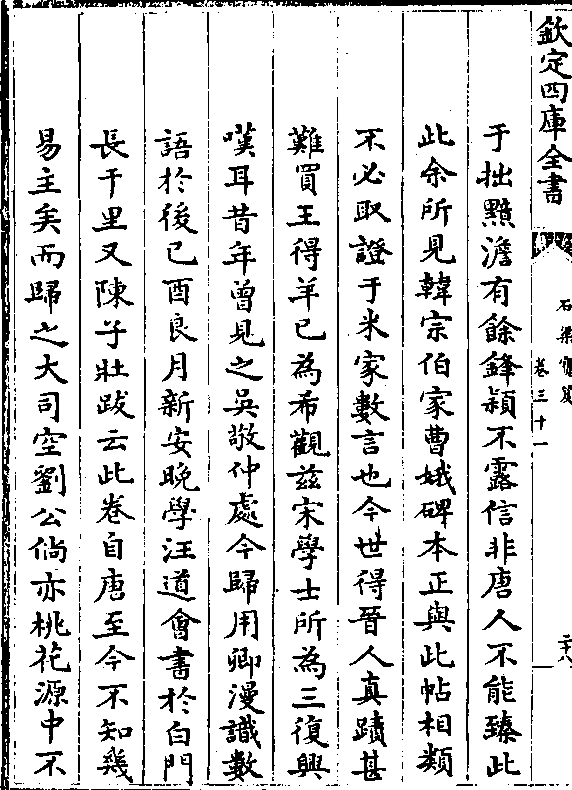 欽定四庫全書
石渠寶笈
卷三十一
二十八
于拙黯澹有餘鋒潁不露信非唐人不能臻此
此余所見韓宗伯家曹娥碑本正與此帖相類
不必取證于米家數言也今世得晉人真蹟甚
難買王得羊已為希觀兹宋學士所為三復興
嘆耳昔年曾見之吳敬仲處今歸用卿漫識數
語於後已酉良月新安晚學汪道會書於白門
長干里又陳子壯跋云此卷自唐至今不知幾
易主矣而歸之大司空劉公倘亦桃花源中不